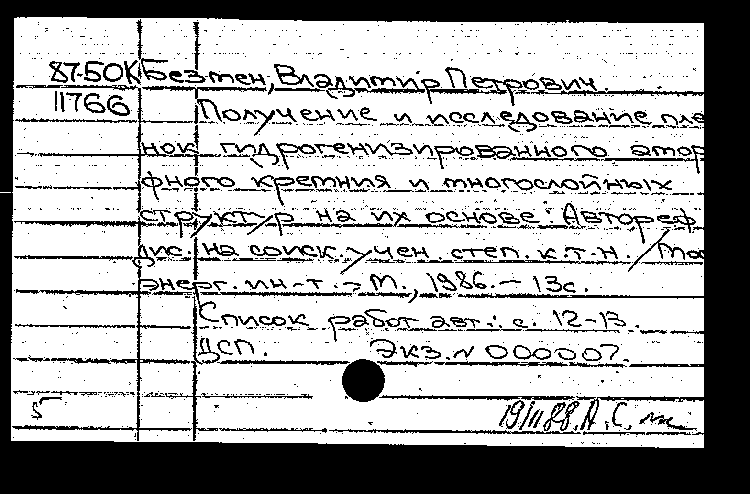 87-50К Безмен, Владимир Петрович.
11766 Получение и исследование пле
нок гидрогенизированного амор
фного кремния и многослойных
структур на их основе: Автореф.
дис. на соиск. учен. степ. к.т.н. / Мос
энерг. ин-т. - М., 1986. - 13с.
Список работ авт.: с. 12-13.
ДСП. Экз. N 000007.
5 19/II 88. А. С.